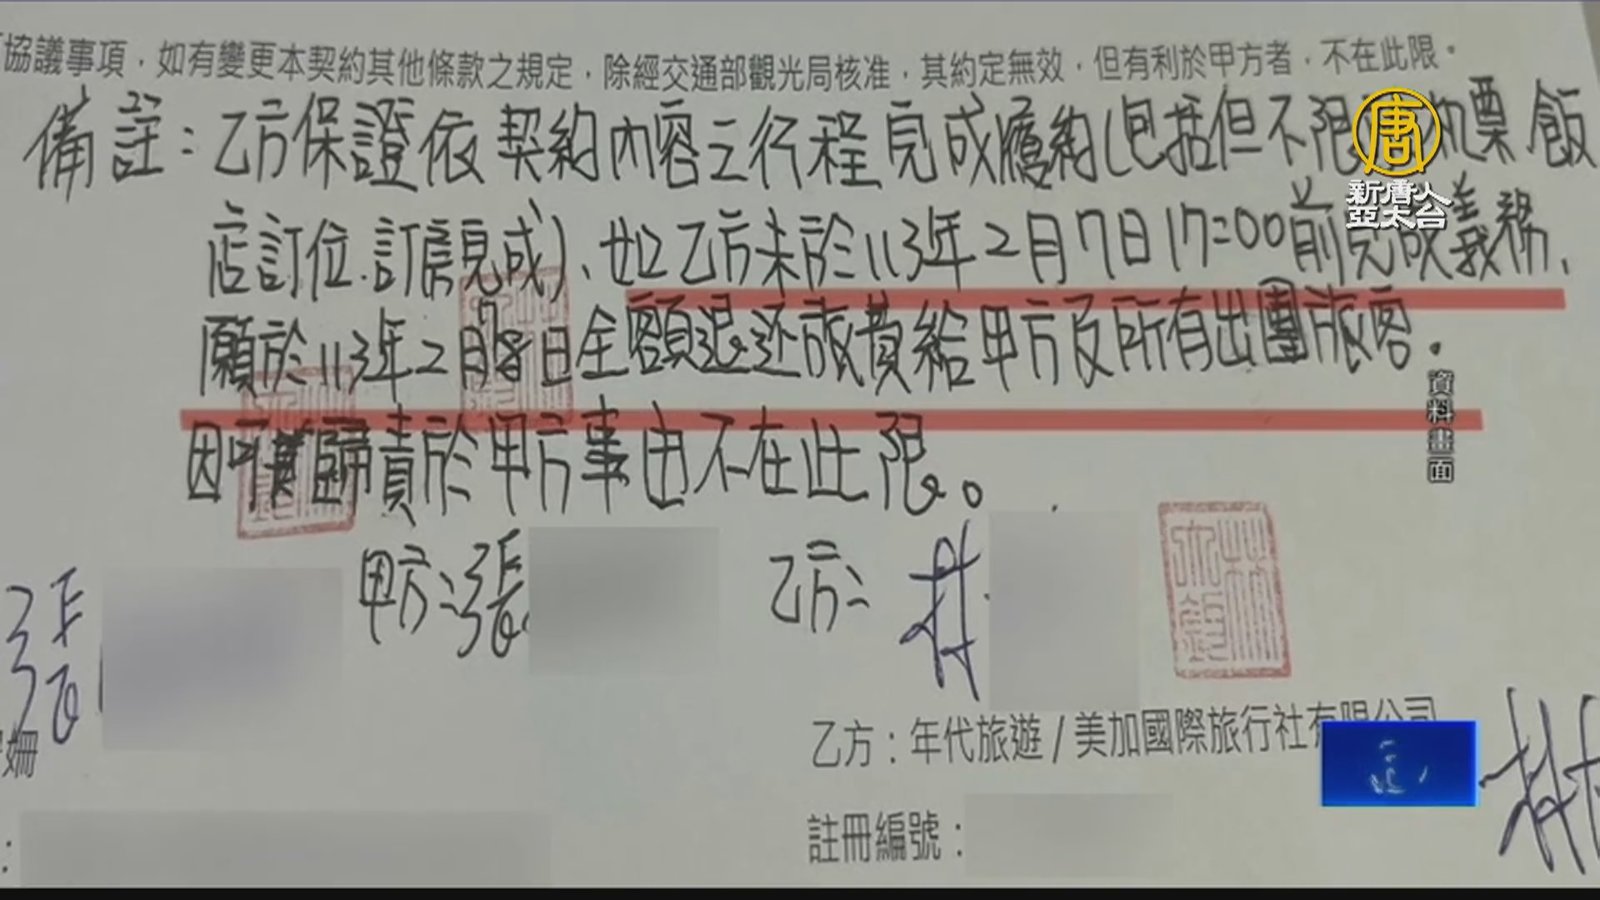 協議事項，如有變更本契約其他條款之規定，除經交通部觀光局核准，其約定無效，但有利於甲方者，不在此限。
備註：乙方保證依契約內容之行程完成履約(包括但不限 機票 飯
店訂位.訂房完成)、如乙方未於113年2月7日17:00前完成義務、
願於113年2月8日全額退还旅費給甲方及所有出團旅客.
因可歸責於甲方事由不在此限。
唐
新唐人
亞太台
資料畫面
張
甲方:張
乙方:林
珊
乙方：年代旅遊/美加國際旅行社有限公司
註冊編號：
林